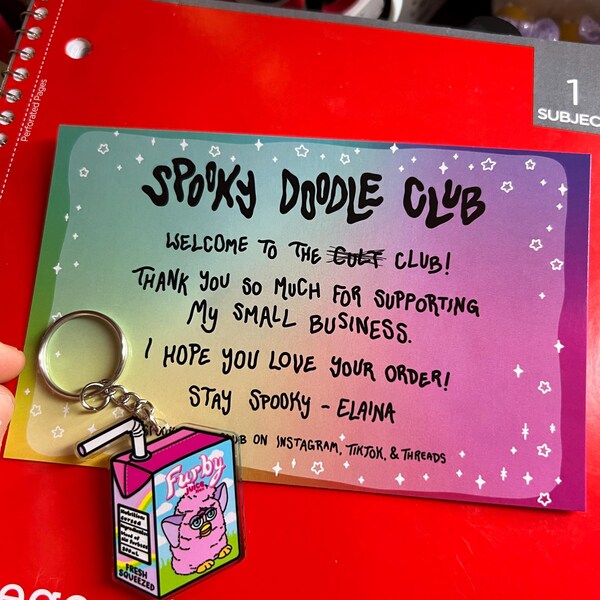 Perforated Pages
1
SUBJEC
SPOOKY DOODLE CLUB
WELCOME TO THE CULT CLUB!
THANK YOU SO MUCH FOR SUPPORTING
MY SMALL BUSINESS.
I HOPE YOU LOVE YOUR ORDER!
STAY SPOOKY - ELAINA
UB ON INSTAGRAM, TIKTOK, & THREADS
Furby
JUICE
FRESH
SQUEEZED